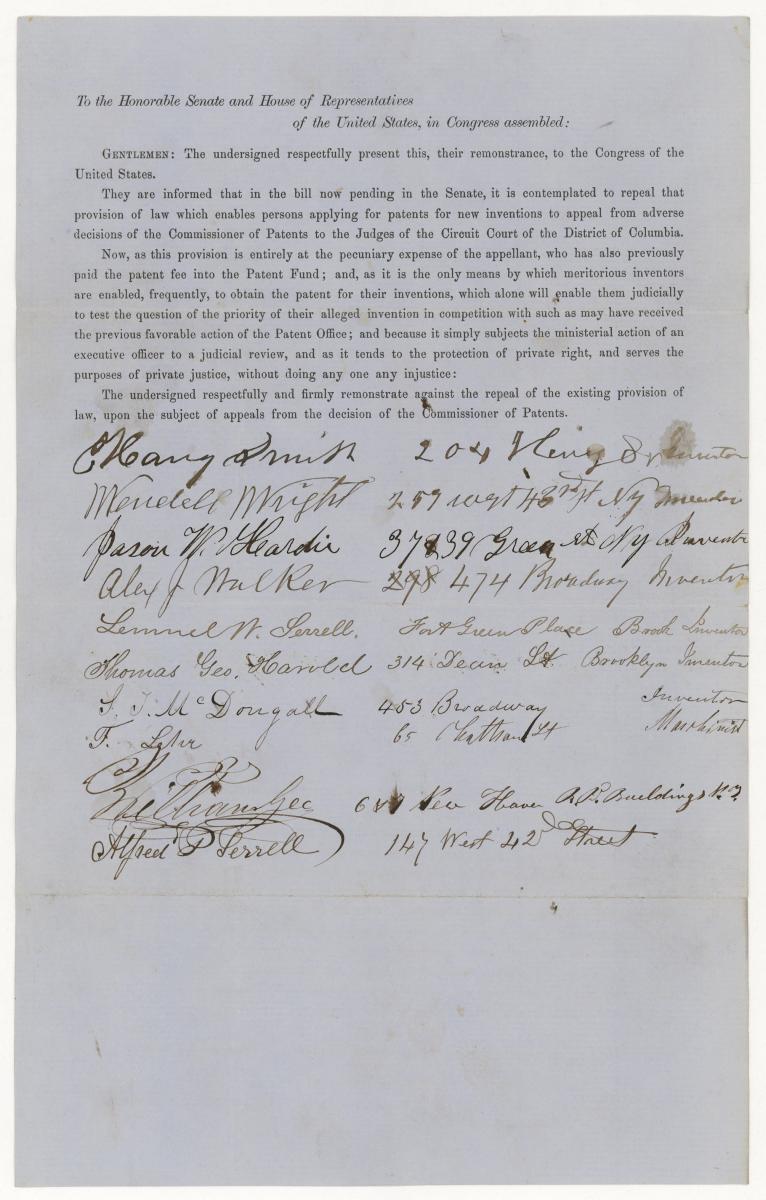 To the Honorable Senate and House of Representatives
of the United States, in Congress assembled:
GENTLEMEN: The undersigned respectfully present this, their remonstrance, to the Congress of the
United States.
They are informed that in the bill now pending in the Senate, it is contemplated to repeal that
provision of law which enables persons applying for patents for new inventions to appeal from adverse
decisions of the Commissioner of Patents to the Judges of the Circuit Court of the District of Columbia.
Now, as this provision is entirely at the pecuniary expense of the appellant, who has also previously
paid the patent fee into the Patent Fund; and, as it is the only means by which meritorious inventors
are enabled, frequently, to obtain the patent for their inventions, which alone will enable them judicially
to test the question of the priority of their alleged invention in competition with such as may have received
the previous favorable action of the Patent Office; and because it simply subjects the ministerial action of an
executive officer to a judicial review, and as it tends to the protection of private right, and serves the
purposes of private justice, without doing any one any injustice:
The undersigned respectfully and firmly remonstrate against the repeal of the existing provision of
law, upon the subject of appeals from the decision of the Commissioner of Patents.
Smith 204 Henry St Inventor
Wendell Wright 259 West 43rd St NY Inventor
Jason W. Hardie 39 Green St NY Inventor
Alex J Walker 474 Broadway Inventor
Lemuel W. Serrell. Fort Green Place Brook Inventor
Thomas Geo. Harold 314 Dean St Brooklyn Inventor
S. J. McDougall 453 Broadway Inventor
F. 65 Chatham St Machinist
New Haven R.R. Buildings N.Y.
Alfred P Serrell 147 West 42d Street